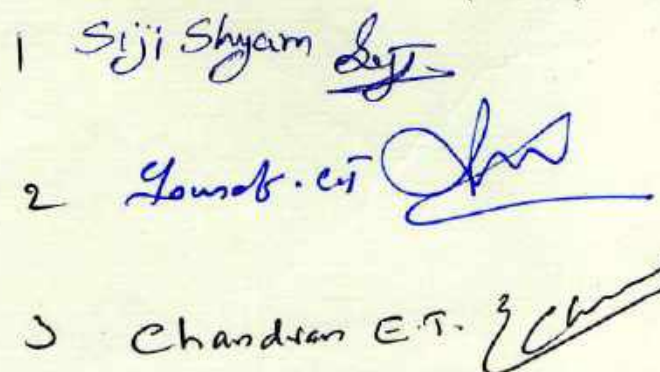 1 Siji Shyam
2 Yousaf . CT
3 Chandran E.T.